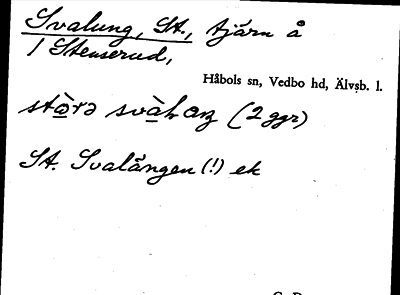 Svalung, St., tjärn å
1 Stenserud,
Håbols sn, Vedbo hd, Älvsb. l.
(2 ggr)
St. Svalången (!) ek